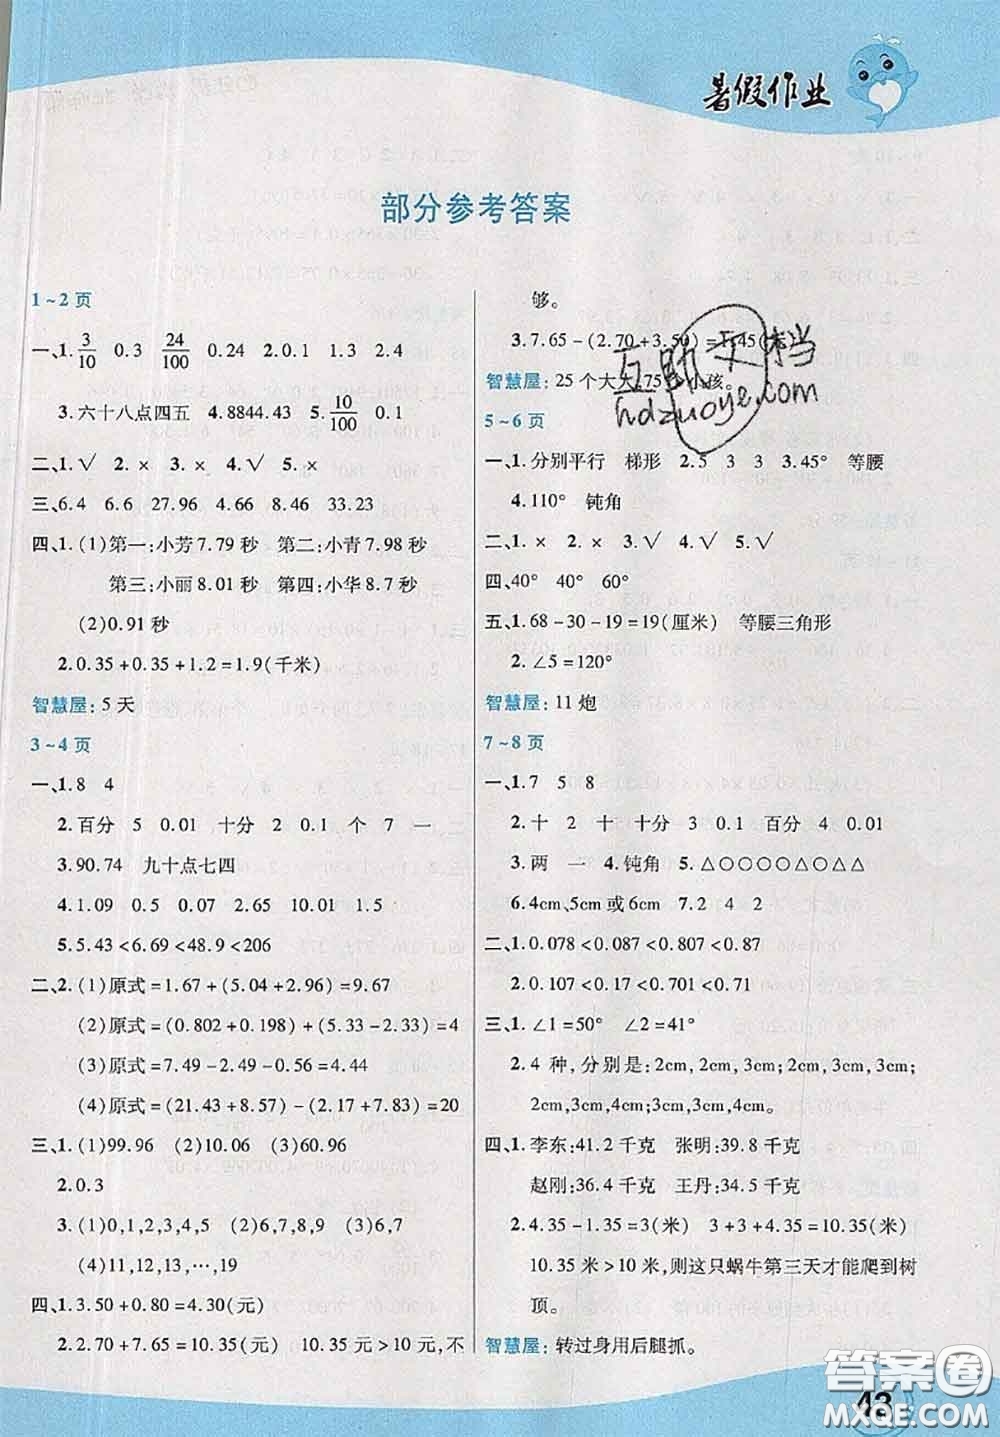 暑假作业
部分参考答案
1~2页
一、1. 3/10 0.3 24/100 0.24 2.0.1 1.3 2.4
3.六十八点四五 4.8844.43 5. 10/100 0.1
二、1.√ 2.× 3.× 4.√ 5.√
三、6.4 6.6 27.96 4.66 8.46 33.23
四、1.(1)第一:小芳7.79秒 第二:小青7.98秒
第三:小丽8.01秒 第四:小华8.7秒
(2)0.91秒
2.0.35+0.35+1.2=1.9(千米)
智慧屋:5天
3~4页
一、1.8 4
2.百分 5 0.01 十分 2 0.1 个 7 一
3.90.74 九十点七四
4.1.09 0.5 0.07 2.65 10.01 1.5
5.5.43<6.69<48.9<206
二、2.(1)原式=1.67+(5.04+2.96)=9.67
(2)原式=(0.802+0.198)+(5.33-2.33)=4
(3)原式=7.49-2.49-0.56=4.44
(4)原式=(21.43+8.57)-(2.17+7.83)=20
三、1.(1)99.96 (2)10.06 (3)60.96
2.0.3
3.(1)0,1,2,3,4,5 (2)6,7,8,9 (3)6,7
(4)11,12,13,…,19
四、1.3.50+0.80=4.30(元)
2.2.70+7.65=10.35(元) 10.35元>10元,不
够。
3.7.65-(2.70+3.50)=1.45(元)
智慧屋:25个大人,75个小孩。
5~6页
一、1.分别平行 梯形 2.5 3 3 3.45° 等腰
4.110° 钝角
二、1.× 2.× 3.√ 4.√ 5.√
四、40° 40° 60°
五、1.68-30-19=19(厘米) 等腰三角形
2.∠5=120°
智慧屋:11炮
7~8页
一、1.7 5 8
2.十 2 十 十分 3 0.1 百分 4 0.01
3.两 一 4.钝角 5.△○○○○△○△△
6.4cm、5cm或6cm 7.2 4 2
二、1.0.078<0.087<0.807<0.87
2.0.107<0.17<0.701<0.71
三、1.∠1=50° ∠2=41°
2.4种,分别是:2cm,2cm,3cm;2cm,3cm,3cm;
2cm,3cm,4cm;3cm,3cm,4cm。
四、1.李东:41.2千克 张明:39.8千克
赵刚:36.5千克 王丹:34.5千克
2.4.35-1.35=3(米) 3+3+4.35=10.35(米)
10.35米>10米,则这只蜗牛第三天才能爬到树
顶。
智慧屋:转过身用后腿抓。
43
互助文档
hdzuoye.com
答案圈
MXQE.COM